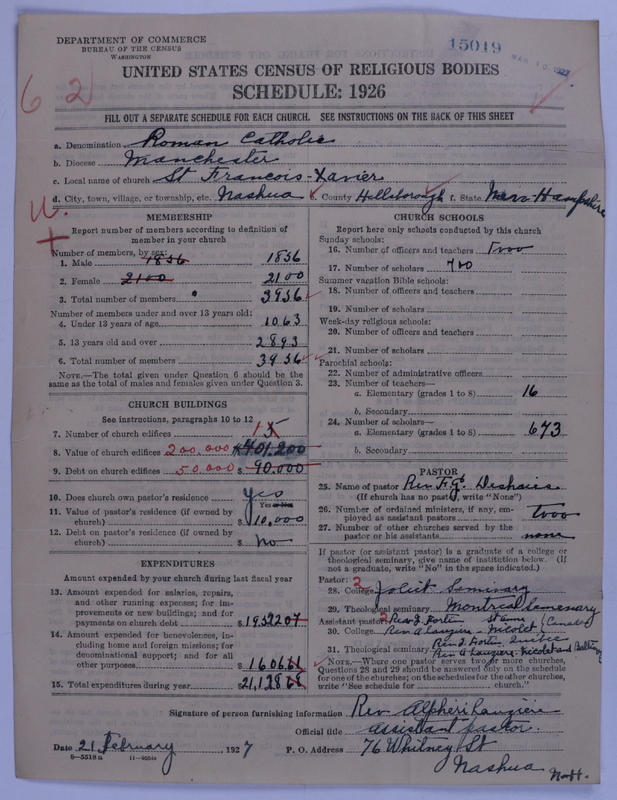 DEPARTMENT OF COMMERCE
BUREAU OF THE CENSUS
WASHINGTON
15019
MAR 10 1927
62
UNITED STATES CENSUS OF RELIGIOUS BODIES
SCHEDULE: 1926
FILL OUT A SEPARATE SCHEDULE FOR EACH CHURCH. SEE INSTRUCTIONS ON THE BACK OF THIS SHEET
a. Denomination Roman Catholic
b. Diocese Manchester
c. Local name of church St Francois-Xavier
d. City, town, village, or township, etc. Nashua e. County Hillsborough f. State New Hampshire
MEMBERSHIP
Report number of members according to definition of
member in your church
Number of members, by sex:
1. Male 1836 1836
2. Female 2100 2100
3. Total number of members 3936
Number of members under and over 13 years old:
4. Under 13 years of age 1063
5. 13 years old and over 2893
6. Total number of members 3936
NOTE.—The total given under Question 6 should be the
same as the total of males and females given under Question 3.
CHURCH BUILDINGS
See instructions, paragraphs 10 to 12
7. Number of church edifices 1 5
8. Value of church edifices 200.000 $401.200
9. Debt on church edifices 50.000 $ 90.000
10. Does church own pastor's residence yes
Yes or No
11. Value of pastor's residence (if owned by
church) $10,000
12. Debt on pastor's residence (if owned by
church) $ no
EXPENDITURES
Amount expended by your church during last fiscal year
13. Amount expended for salaries, repairs,
and other running expenses; for im-
provements or new buildings; and for
payments on church debt $19522 07
14. Amount expended for benevolences, in-
cluding home and foreign missions; for
denominational support; and for all
other purposes $1606 61
15. Total expenditures during year $21,128 68
CHURCH SCHOOLS
Report here only schools conducted by this church
Sunday schools:
16. Number of officers and teachers Twoo
17. Number of scholars 700
Summer vacation Bible schools:
18. Number of officers and teachers
19. Number of scholars
Week-day religious schools:
20. Number of officers and teachers
21. Number of scholars
Parochial schools:
22. Number of administrative officers
23. Number of teachers—
a. Elementary (grades 1 to 8) 16
b. Secondary
24. Number of scholars—
a. Elementary (grades 1 to 8) 673
b. Secondary
PASTOR
25. Name of pastor Rev. F. G. Deshaies
(If church has no pastor, write "None")
26. Number of ordained ministers, if any, em-
ployed as assistant pastors Twoo
27. Number of other churches served by the
pastor or his assistants none
If pastor (or assistant pastor) is a graduate of a college or
theological seminary, give name of institution below. (If
not a graduate, write "No" in the space indicated.)
Pastor:
28. College Joliet Seminary
29. Theological seminary Montreal
Assistant pastor: Rev J. (Canada)
30. College Rev A Lauziere - Nicolet
31. Theological seminary Rev J.
Rev A Lauziere. Nicolet and Baltimore
NOTE.—Where one pastor serves two or more churches,
Questions 28 and 29 should be answered only on the schedule
for one of the churches; on the schedules for the other churches,
write "See schedule for church."
Signature of person furnishing information Rev Alpheri Lauziere
Official title assistant pastor.
Date 21 February 1927 P. O. Address 76 Whitney St
Nashua N-H.